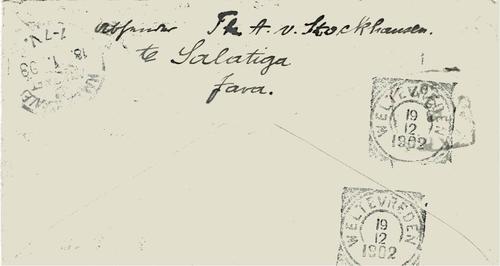 Absender Th. A. v. Stockhausen.
te Salatiga
Java.
WELTEVREDEN
19
12
1902
WELTEVREDEN
19
12
1902